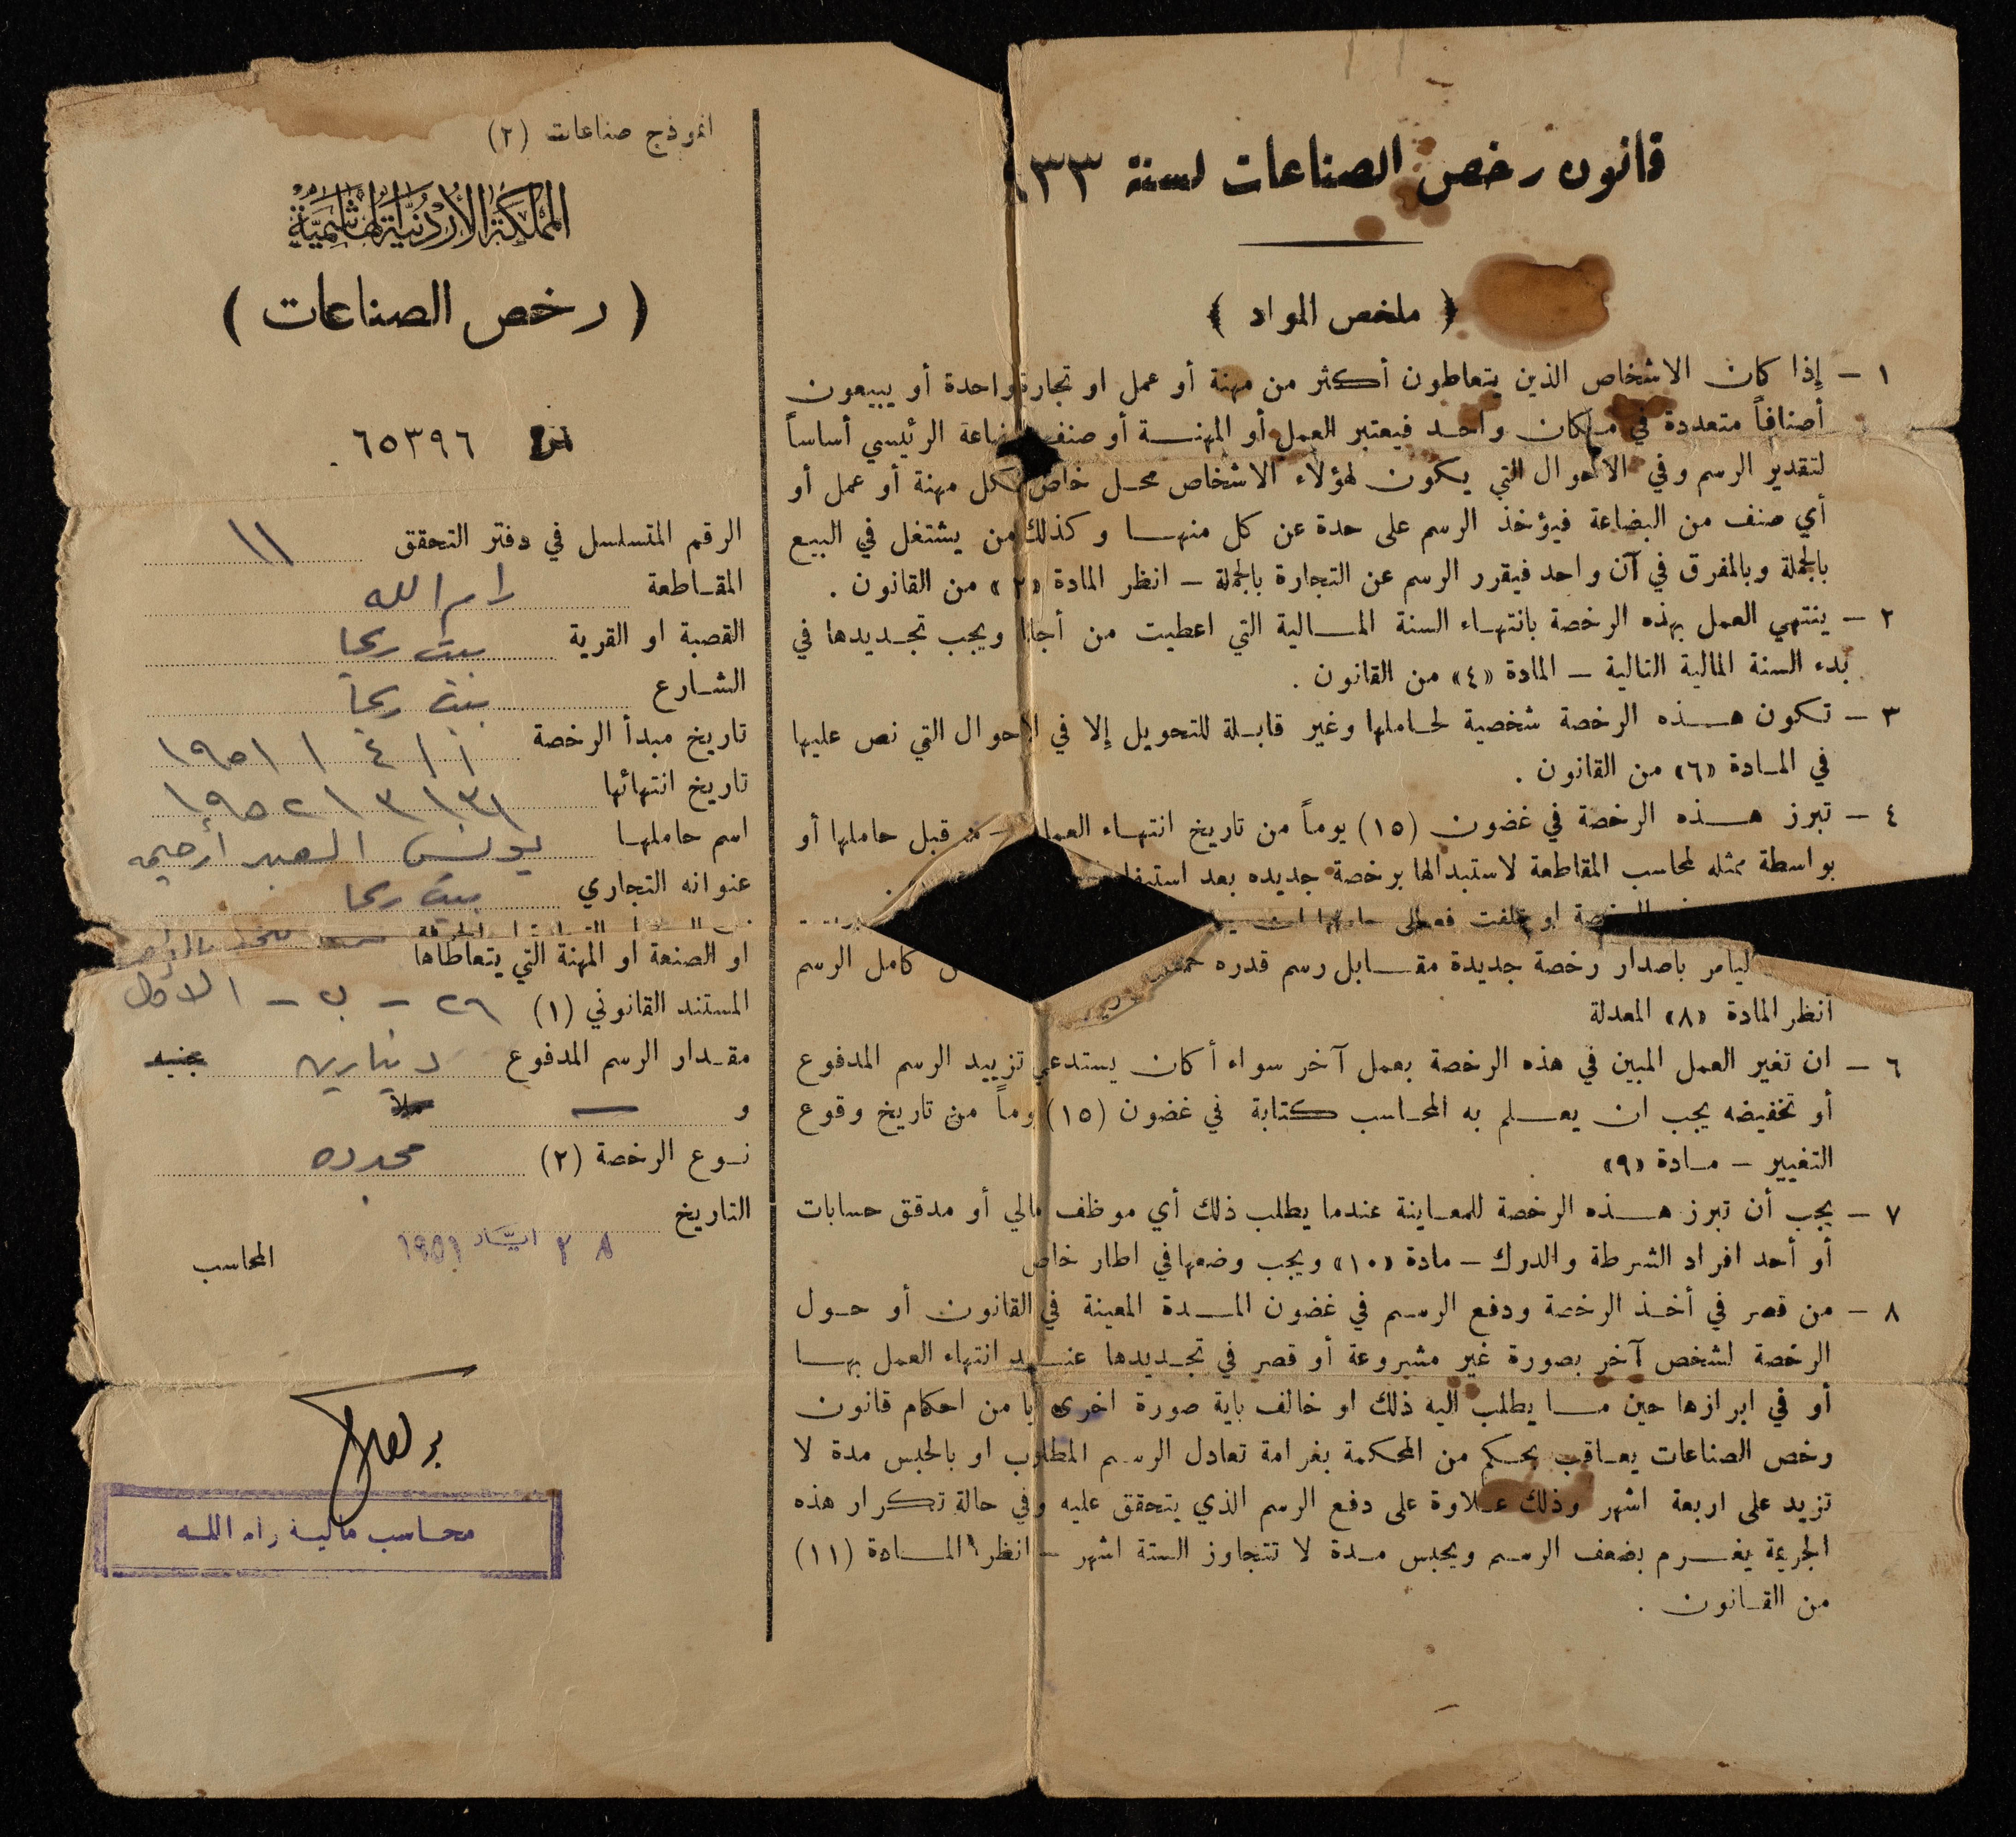 قانون رخص الصناعات لسنة ٣٣
﴿ ملخص المواد ﴾
١ - إذا كان الاشخاص الذين يتعاطون أكثر من مهنة أو عمل او تجارة واحدة أو يبيعون
أصنافاً متعددة في مكان واحد فيعتبر العمل أو المهنة أو صنف البضاعة الرئيسي أساساً
لتقدير الرسم وفي الاحوال التي يكون لهؤلاء الاشخاص محل خاص لكل مهنة أو عمل أو
أي صنف من البضاعة فيؤخذ الرسم على حدة عن كل منها وكذلك من يشتغل في البيع
بالجملة وبالمفرق في آن واحد فيقرر الرسم عن التجارة بالجملة - انظر المادة «٢» من القانون .
٢ - ينتهي العمل بهذه الرخصة بانتهاء السنة المالية التي اعطيت من أجلها ويجب تجديدها في
بدء السنة المالية التالية - المادة «٤» من القانون .
٣ - تكون هذه الرخصة شخصية لحاملها وغير قابلة للتحويل إلا في الاحوال التي نص عليها
في المادة «٦» من القانون .
٤ - تبرز هذه الرخصة في غضون (١٥) يوماً من تاريخ انتهاء العمل من قبل حاملها أو
بواسطة ممثله لمحاسب المقاطعة لاستبدالها برخصة جديده بعد
الرخصة او تلفت فعلى حاملها
ليأمر باصدار رخصة جديدة مقابل رسم قدره كامل الرسم
انظر المادة «٨» المعدلة
٦ - ان تغير العمل المبين في هذه الرخصة بعمل آخر سواء أكان يستدعي تزييد الرسم المدفوع
أو تخفيضه يجب ان يعلم به المحاسب كتابة في غضون (١٥) يوماً من تاريخ وقوع
التغيير - مادة «٩»
٧ - يجب أن تبرز هذه الرخصة للمعاينة عندما يطلب ذلك أي موظف مالي أو مدقق حسابات
أو أحد افراد الشرطة والدرك - مادة «١٠» ويجب وضعها في اطار خاص
٨ - من قصر في أخذ الرخصة ودفع الرسم في غضون المدة المعينة في القانون أو حول
الرخصة لشخص آخر بصورة غير مشروعة أو قصر في تجديدها عند انتهاء العمل بها
أو في ابرازها حين ما يطلب اليه ذلك او خالف باية صورة اخرى أيا من احكام قانون
رخص الصناعات يعاقب بحكم من المحكمة بغرامة تعادل الرسم المطلوب او بالحبس مدة لا
تزيد على اربعة اشهر وذلك علاوة على دفع الرسم الذي يتحقق عليه وفي حالة تكرار هذه
الجريمة يغرم بضعف الرسم ويحبس مدة لا تتجاوز الستة اشهر - انظر المادة (١١)
من القانون .
انموذج صناعات (٢)
المملكة الأردنية الهاشمية
( رخص الصناعات )
٦٥٣٩٦
الرقم المتسلسل في دفتر التحقق ١١
المقاطعة رام الله
القصبة او القرية بيت ريما
الشارع بيت ريما
تاريخ مبدأ الرخصة ١ / ٤ / ١٩٥١
تاريخ انتهائها ٣١ / ٣ / ١٩٥٢
اسم حاملها يونس العبد ارحيمه
عنوانه التجاري بيت ريما
او الصنعة او المهنة التي يتعاطاها
المستند القانوني (١) ٢٦ - ب - الاول
مقدار الرسم المدفوع دينارين جنيه
و — ملا
نوع الرخصة (٢) مجدده
التاريخ ٢٨ ايار ١٩٥١
المحاسب
محاسب مالية رام الله